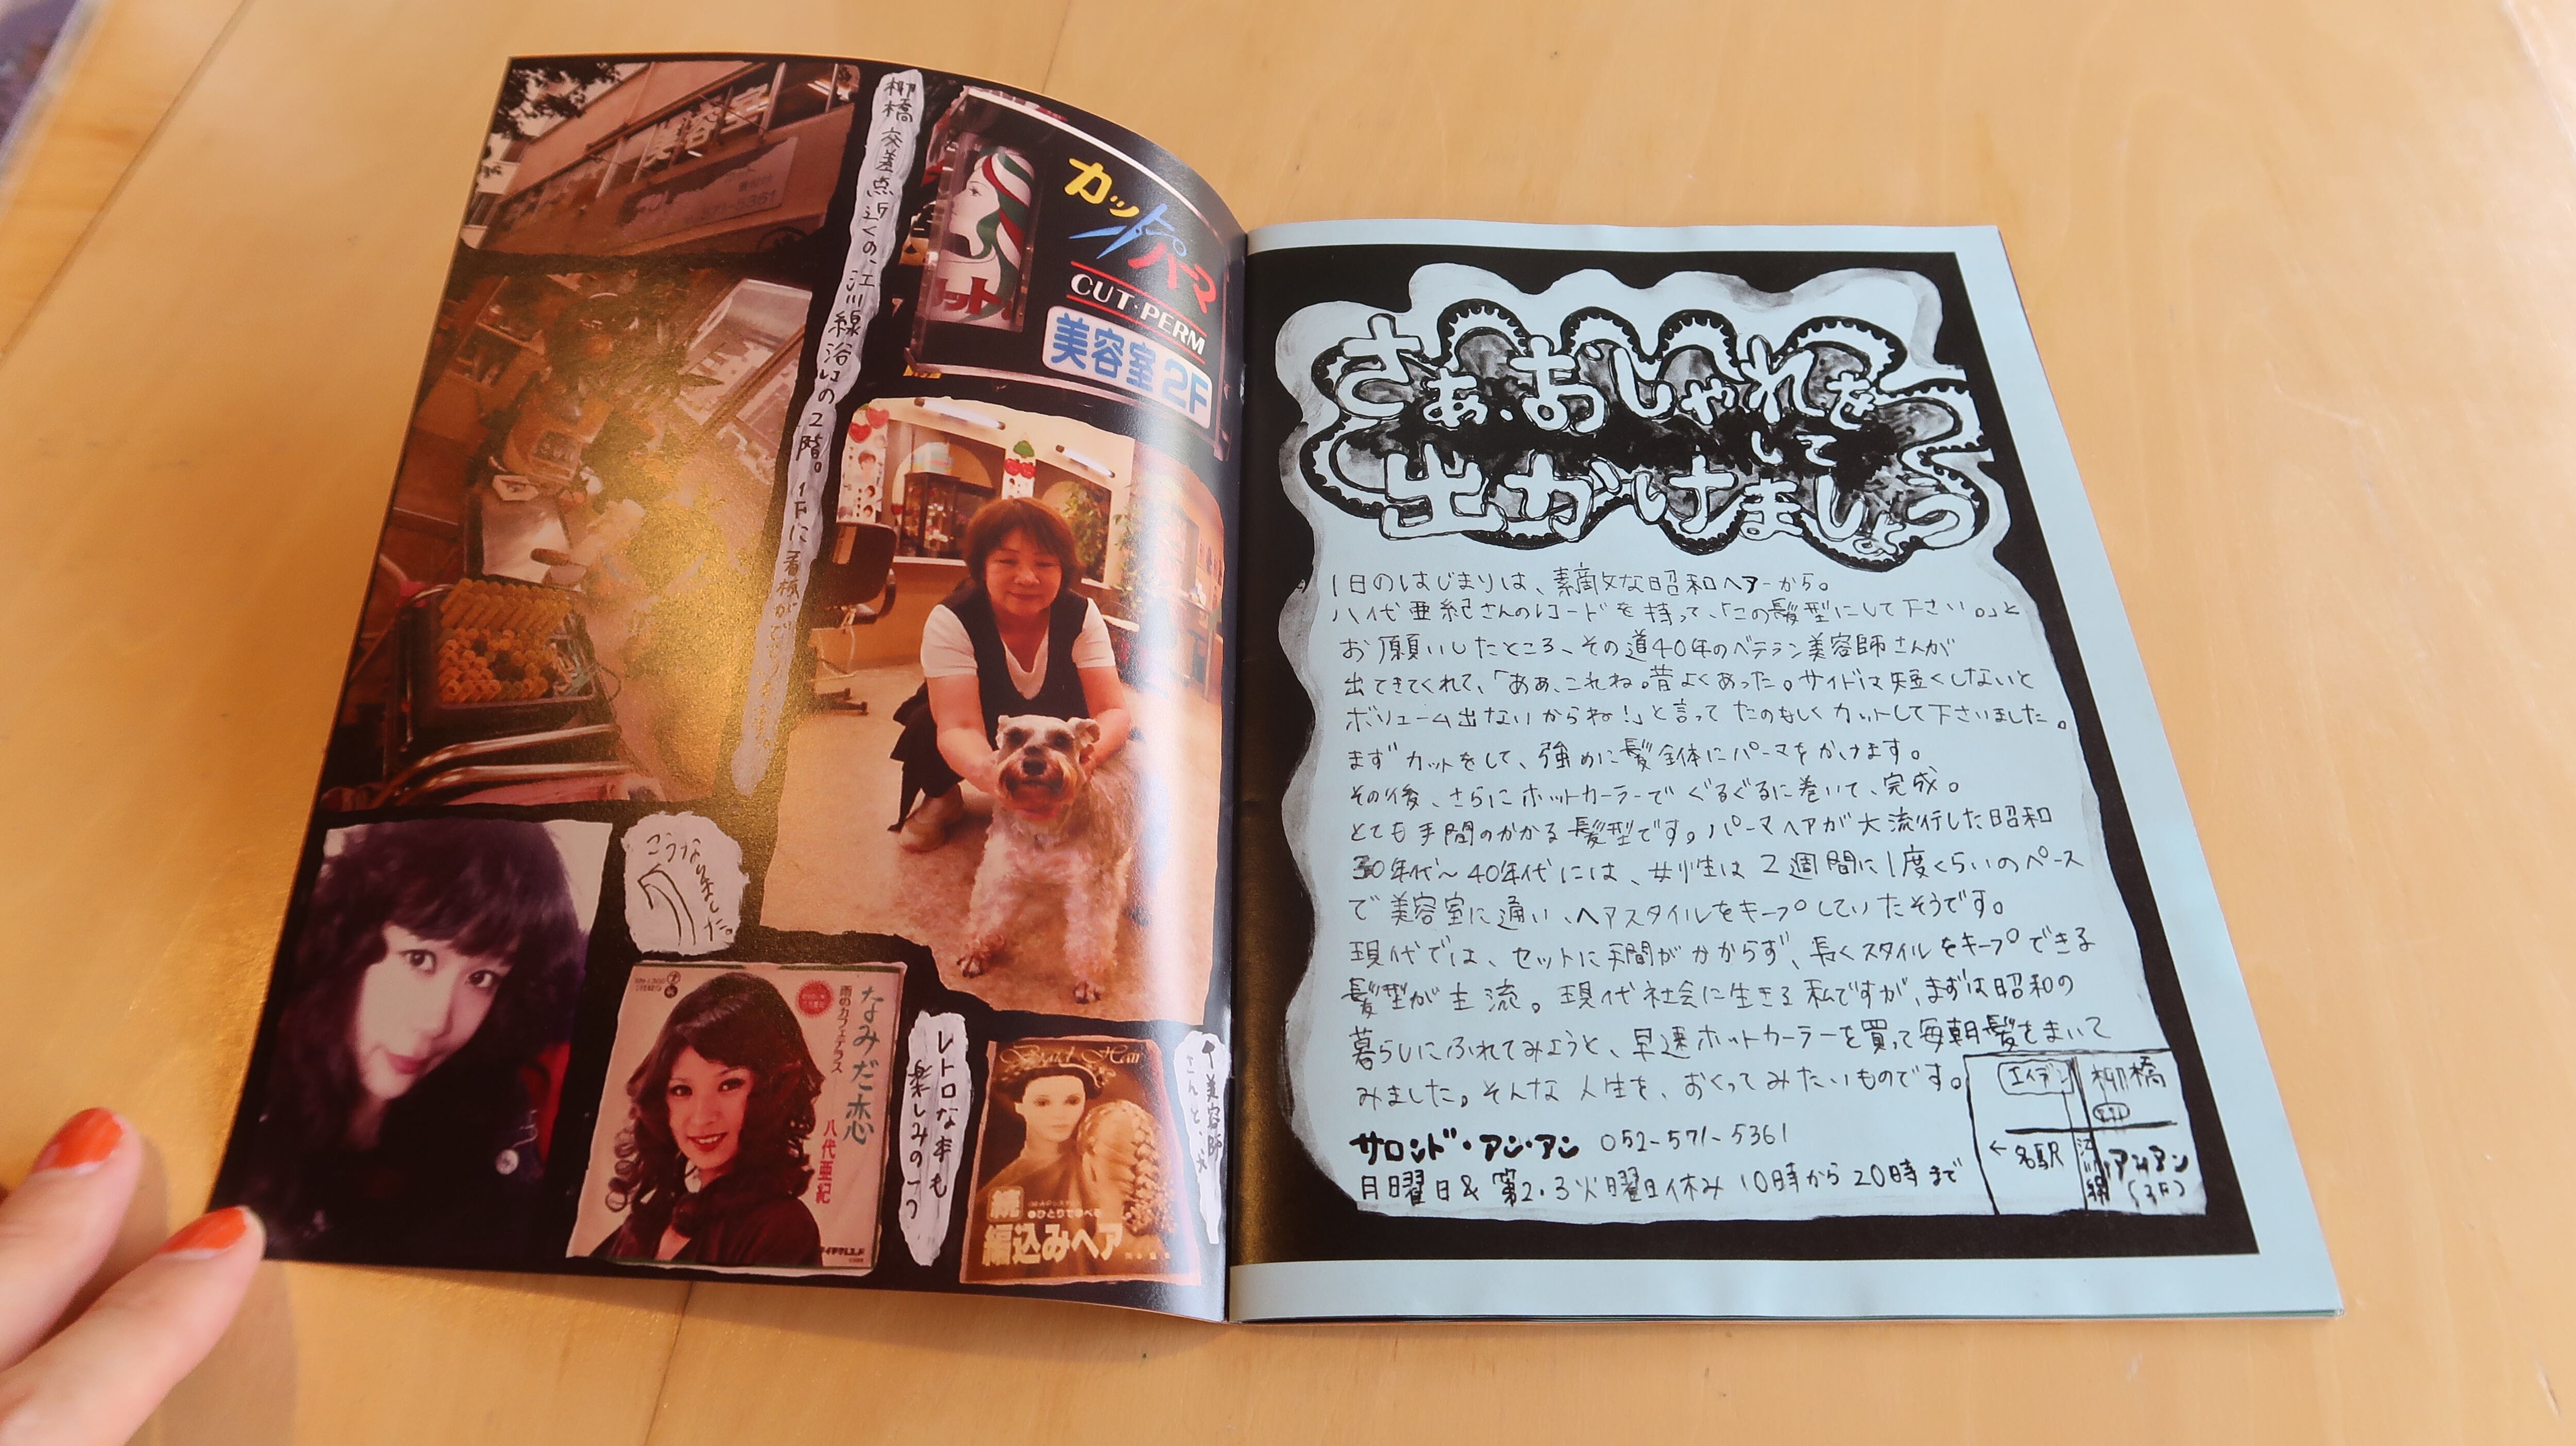 美容室
571-5361
柳橋交差点近くの、江川線沿いの2階。1Fに看板がで
カット
カットパーマ
CUT・PERM
美容室2F
こうなりました。
なみだ恋
雨のカフェテラス
八代亜紀
レトロな本も
楽しみの一つ
Braid Hair
続
ひとりで学べる
編込みヘア
↑美容師
さんと、犬
さぁ、おしゃれを
して
出かけましょう
1日のはじまりは、素敵な昭和ヘアーから。
八代亜紀さんのレコードを持って、「この髪型にして下さい。」と
お願いしたところ、その道40年のベテラン美容師さんが
出てきてくれて、「ああ、これね。昔よくあった。サイドは短くしないと
ボリューム出ないからね!」と言ってたのもしくカットして下さいました。
まずカットをして、強めに髪全体にパーマをかけます。
その後、さらにホットカーラーでぐるぐるに巻いて、完成。
とても手間のかかる髪型です。パーマヘアが大流行した昭和
30年代〜40年代には、女性は2週間に1度くらいのペース
で美容室に通い、ヘアスタイルをキープしていたそうです。
現代では、セットに手間がかからず、長くスタイルをキープできる
髪型が主流。現代社会に生きる私ですが、まずは昭和の
暮らしにふれてみようと、早速ホットカーラーを買って毎朝髪をまいて
みました。そんな人生を、おくってみたいものです。
サロンド・アン・アン 052-571-5361
月曜日&第2.3火曜日休み 10時から20時まで
エイデン
柳橋
←名駅
江川線
アンアン